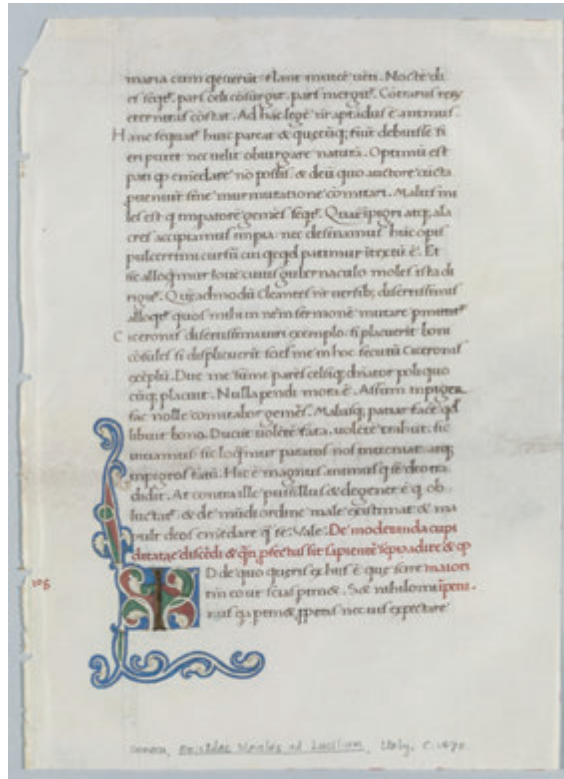 maria cum generūt & lane mutce uēti. Noctē di
es seqt. pars celi cōsurgit. pars mergit. Cōtrariis rerū
eternitas cōstat. Ad hāc legē nr̄ aptādus ē animus.
Hanc sequat huic pareat & quecūq; fiūt debuisse fi
eri putet nec uelit obiurgare naturā. Optimū est
pati qd emēdare nō possis. & deū quo auctore cūcta
proueniūt sine murmuratione comitari. Malus mi
les est q impatorē gemēs seqt. Quare īpigri atq; ala
cres accipiamus impia nec desinamus huic opis
pulcerrimi cursū cui qcqd patimur ītextū ē. Et
sic alloqmur Iouē cuius gubernaculo moles ista di
rigit. Quēadmodū Cleantes nr̄ uersib; disertissimis
alloqt quos mihi in nr̄m sermonē mutare pmittit
Ciceronis disertissimi uiri exemplo. si placuerit boni
cōsules si displicuerit scies me in hoc secutū Ciceronis
exēplū. Duc me sūme parēs celsiq; dn̄ator poli quo
cūq; placuit. Nulla parendi mora ē. Assum impiger
fac nolle comitabor gemēs. Malusq; patiar facē qd
libuit bono. Ducūt uolētē fata. nolētē trahūt. sic
uiuamus sic loqmur paratos nos inueniat atq;
impigros fatū. Hic ē magnus animus q se deo tra
didit. At contra ille pusillus & degener ē q ob
luctat & de mūdi ordine male existimat & ma
uult deos emēdare q se. Vale. De moderanda cupi
ditatae discēdi & qn pfectus sit sapientē
ID de quo queris ex his ē que scire maiori
106
rin eo ut scias ptinet. Sed nihilomi ipens.
nus qa ptinet ppens nec uis expectare
Seneca, Epistolae Morales ad Lucilium, Italy, C. 1470.